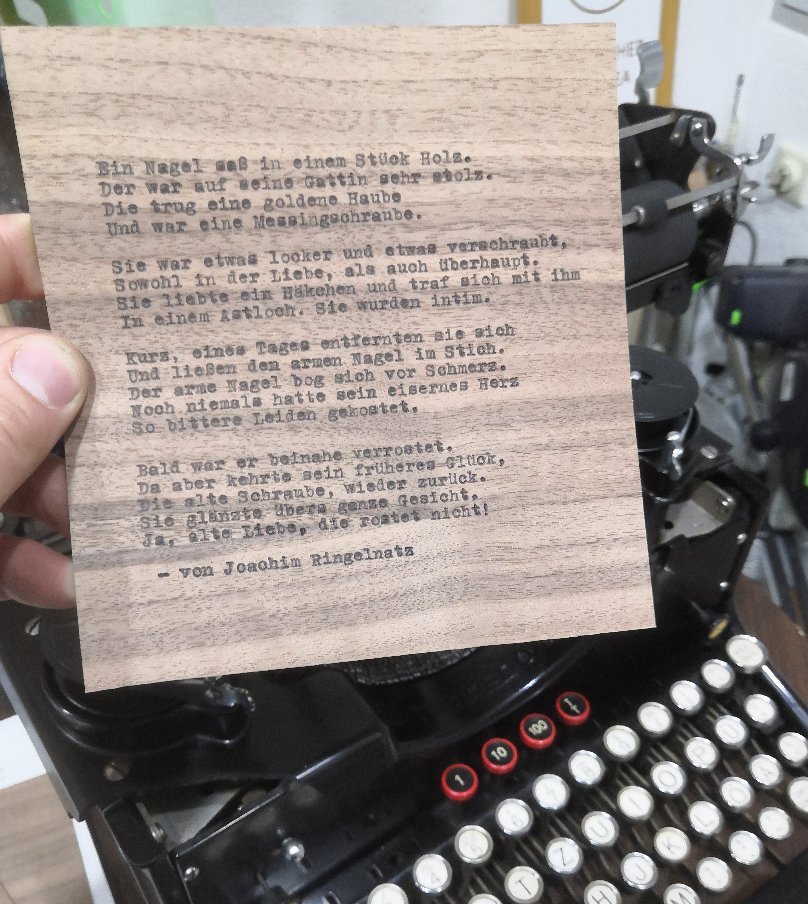 Ein Nagel saß in einem Stück Holz.
Der war auf seine Gattin sehr stolz.
Die trug eine goldene Haube
Und war eine Messingschraube.
Sie war etwas locker und etwas verschraubt,
Sowohl in der Liebe, als auch überhaupt.
Sie liebte ein Häkchen und traf sich mit ihm
In einem Astloch. Sie wurden intim.
Kurz, eines Tages entfernten sie sich
Und ließen den armen Nagel im Stich.
Der arme Nagel bog sich vor Schmerz.
Noch niemals hatte sein eisernes Herz
So bittere Leiden gekostet.
Bald war er beinahe verrostet.
Da aber kehrte sein früheres Glück,
Die alte Schraube, wieder zurück.
Sie glänzte übers ganze Gesicht.
Ja, alte Liebe, die rostet nicht!
- von Joachim Ringelnatz
1 10 100
T Z U I O
H J K L
M